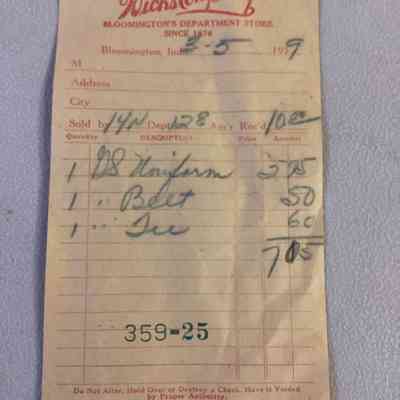 Wicks Company
BLOOMINGTON'S DEPARTMENT STORE
SINCE 1876
Bloomington, Ind. 3-5 1979
M
Address
City
Sold by 14N Dept. 128 Am't Rec'd 10.00
Quantity DESCRIPTION Price Amount
1 GS Uniform 5 95
1 " Belt 50
1 " Tie 60
7 05
359-25
Do Not Alter, Hold Over or Destroy a Check. Have it Voided
by Proper Authority.